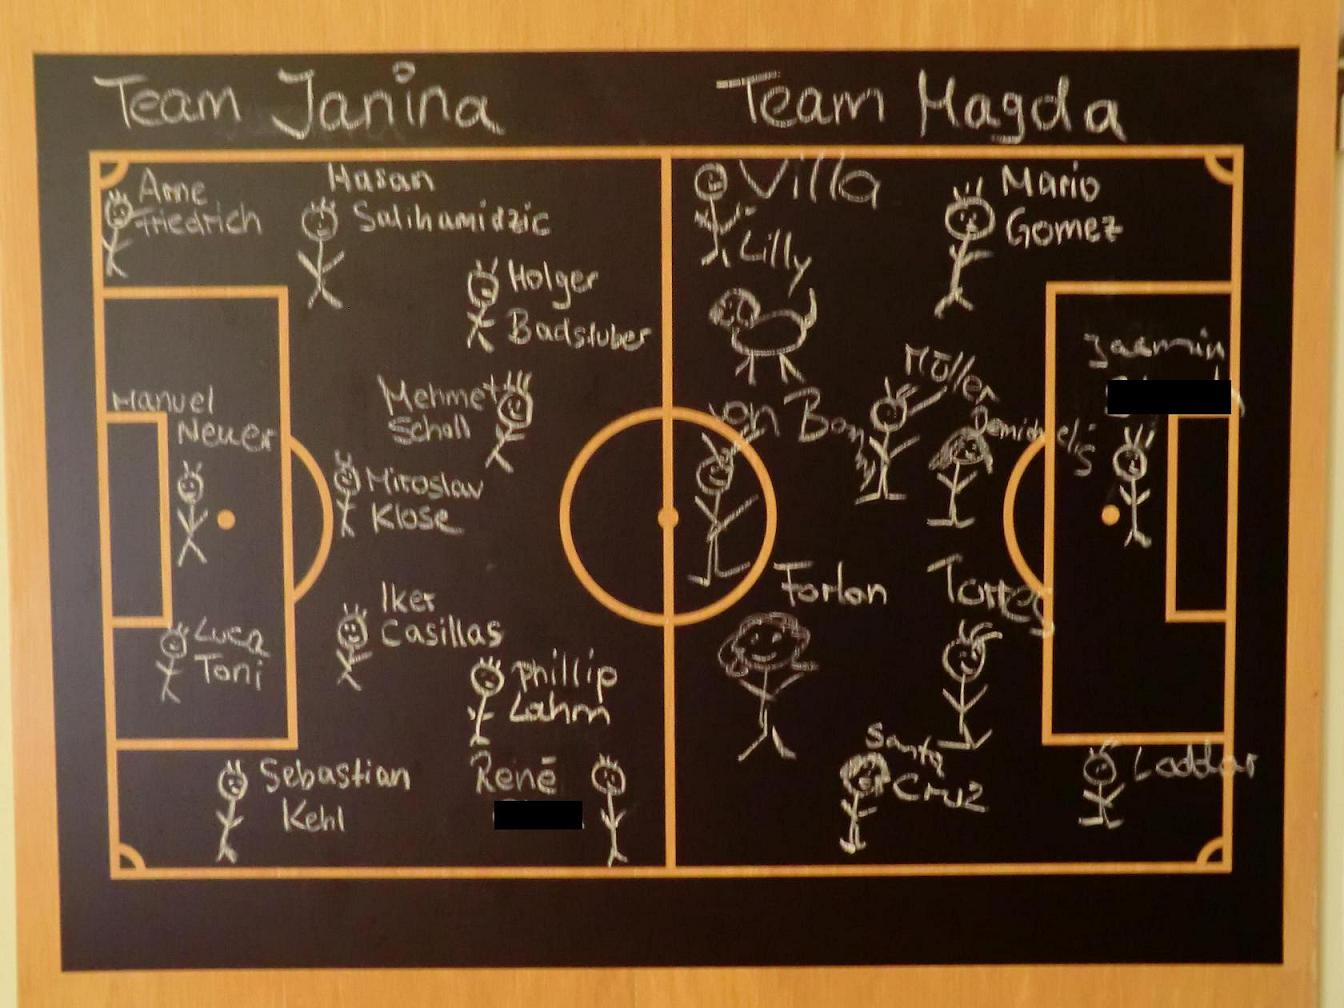 Team Janina
Team Magda
Arne
Friedrich
Hasan
Salihamidzic
Holger
Badstuber
Manuel
Neuer
Mehmet
Scholl
Miroslav
Klose
Iker
Casillas
Luca
Toni
Phillip
Lahm
Sebastian
Kehl
René
Villa
Lilly
Mario
Gomez
Jasmin
Müller
von Bommel
Demichelis
Forlan
Torres
Santa
Cruz
Loddar